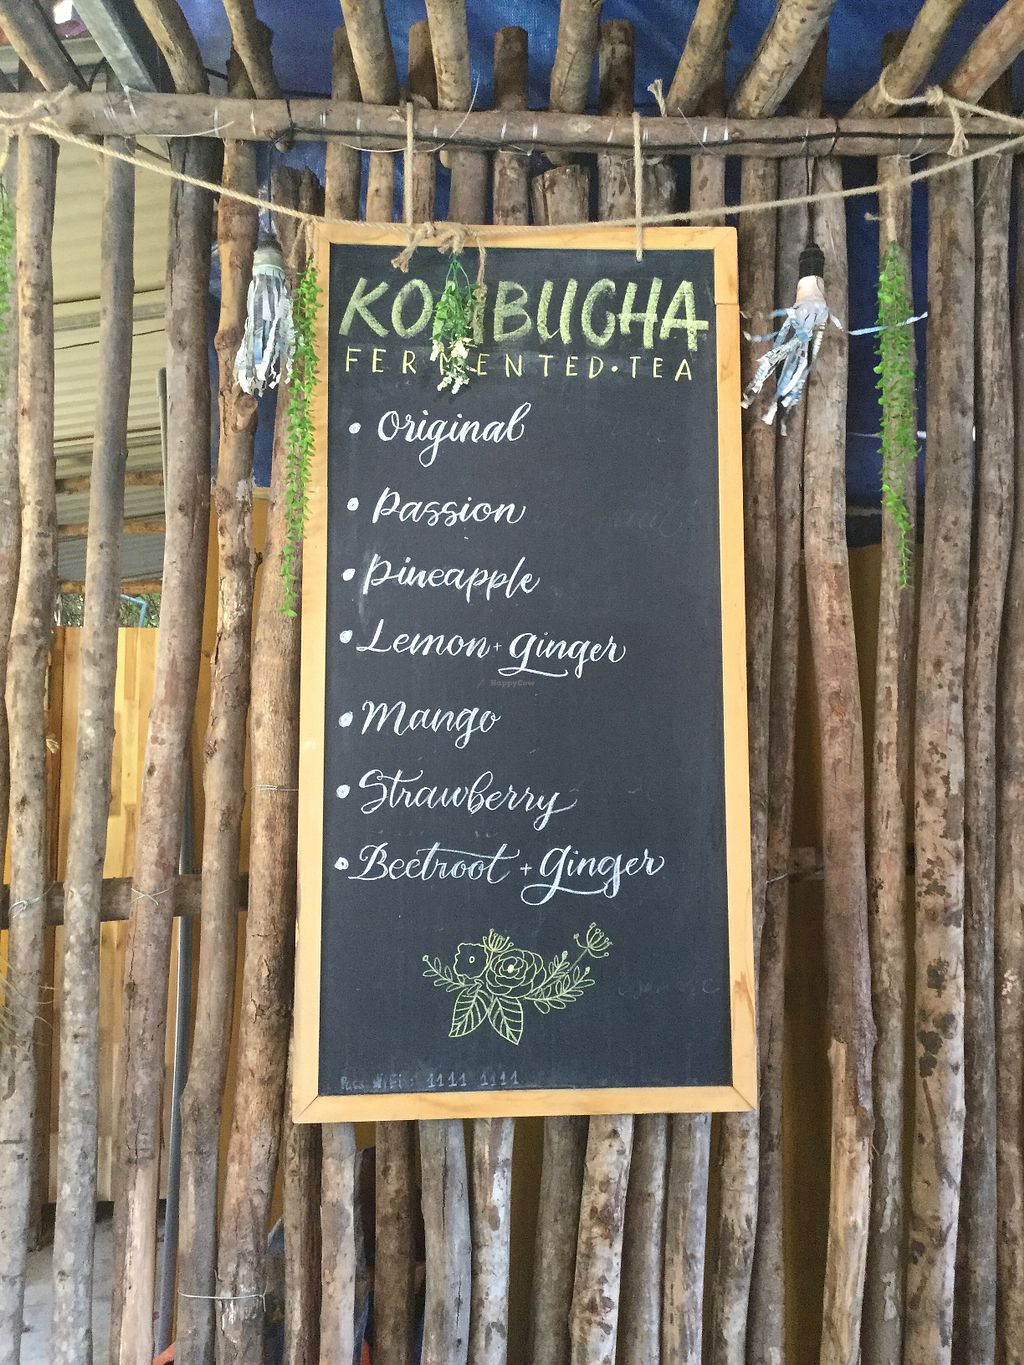 KOMBUCHA
FERMENTED·TEA
• Original
• Passion
• Pineapple
• Lemon + ginger
HappyCow
• Mango
• Strawberry
• Beetroot + ginger
Pass WiFi : 1111 1111